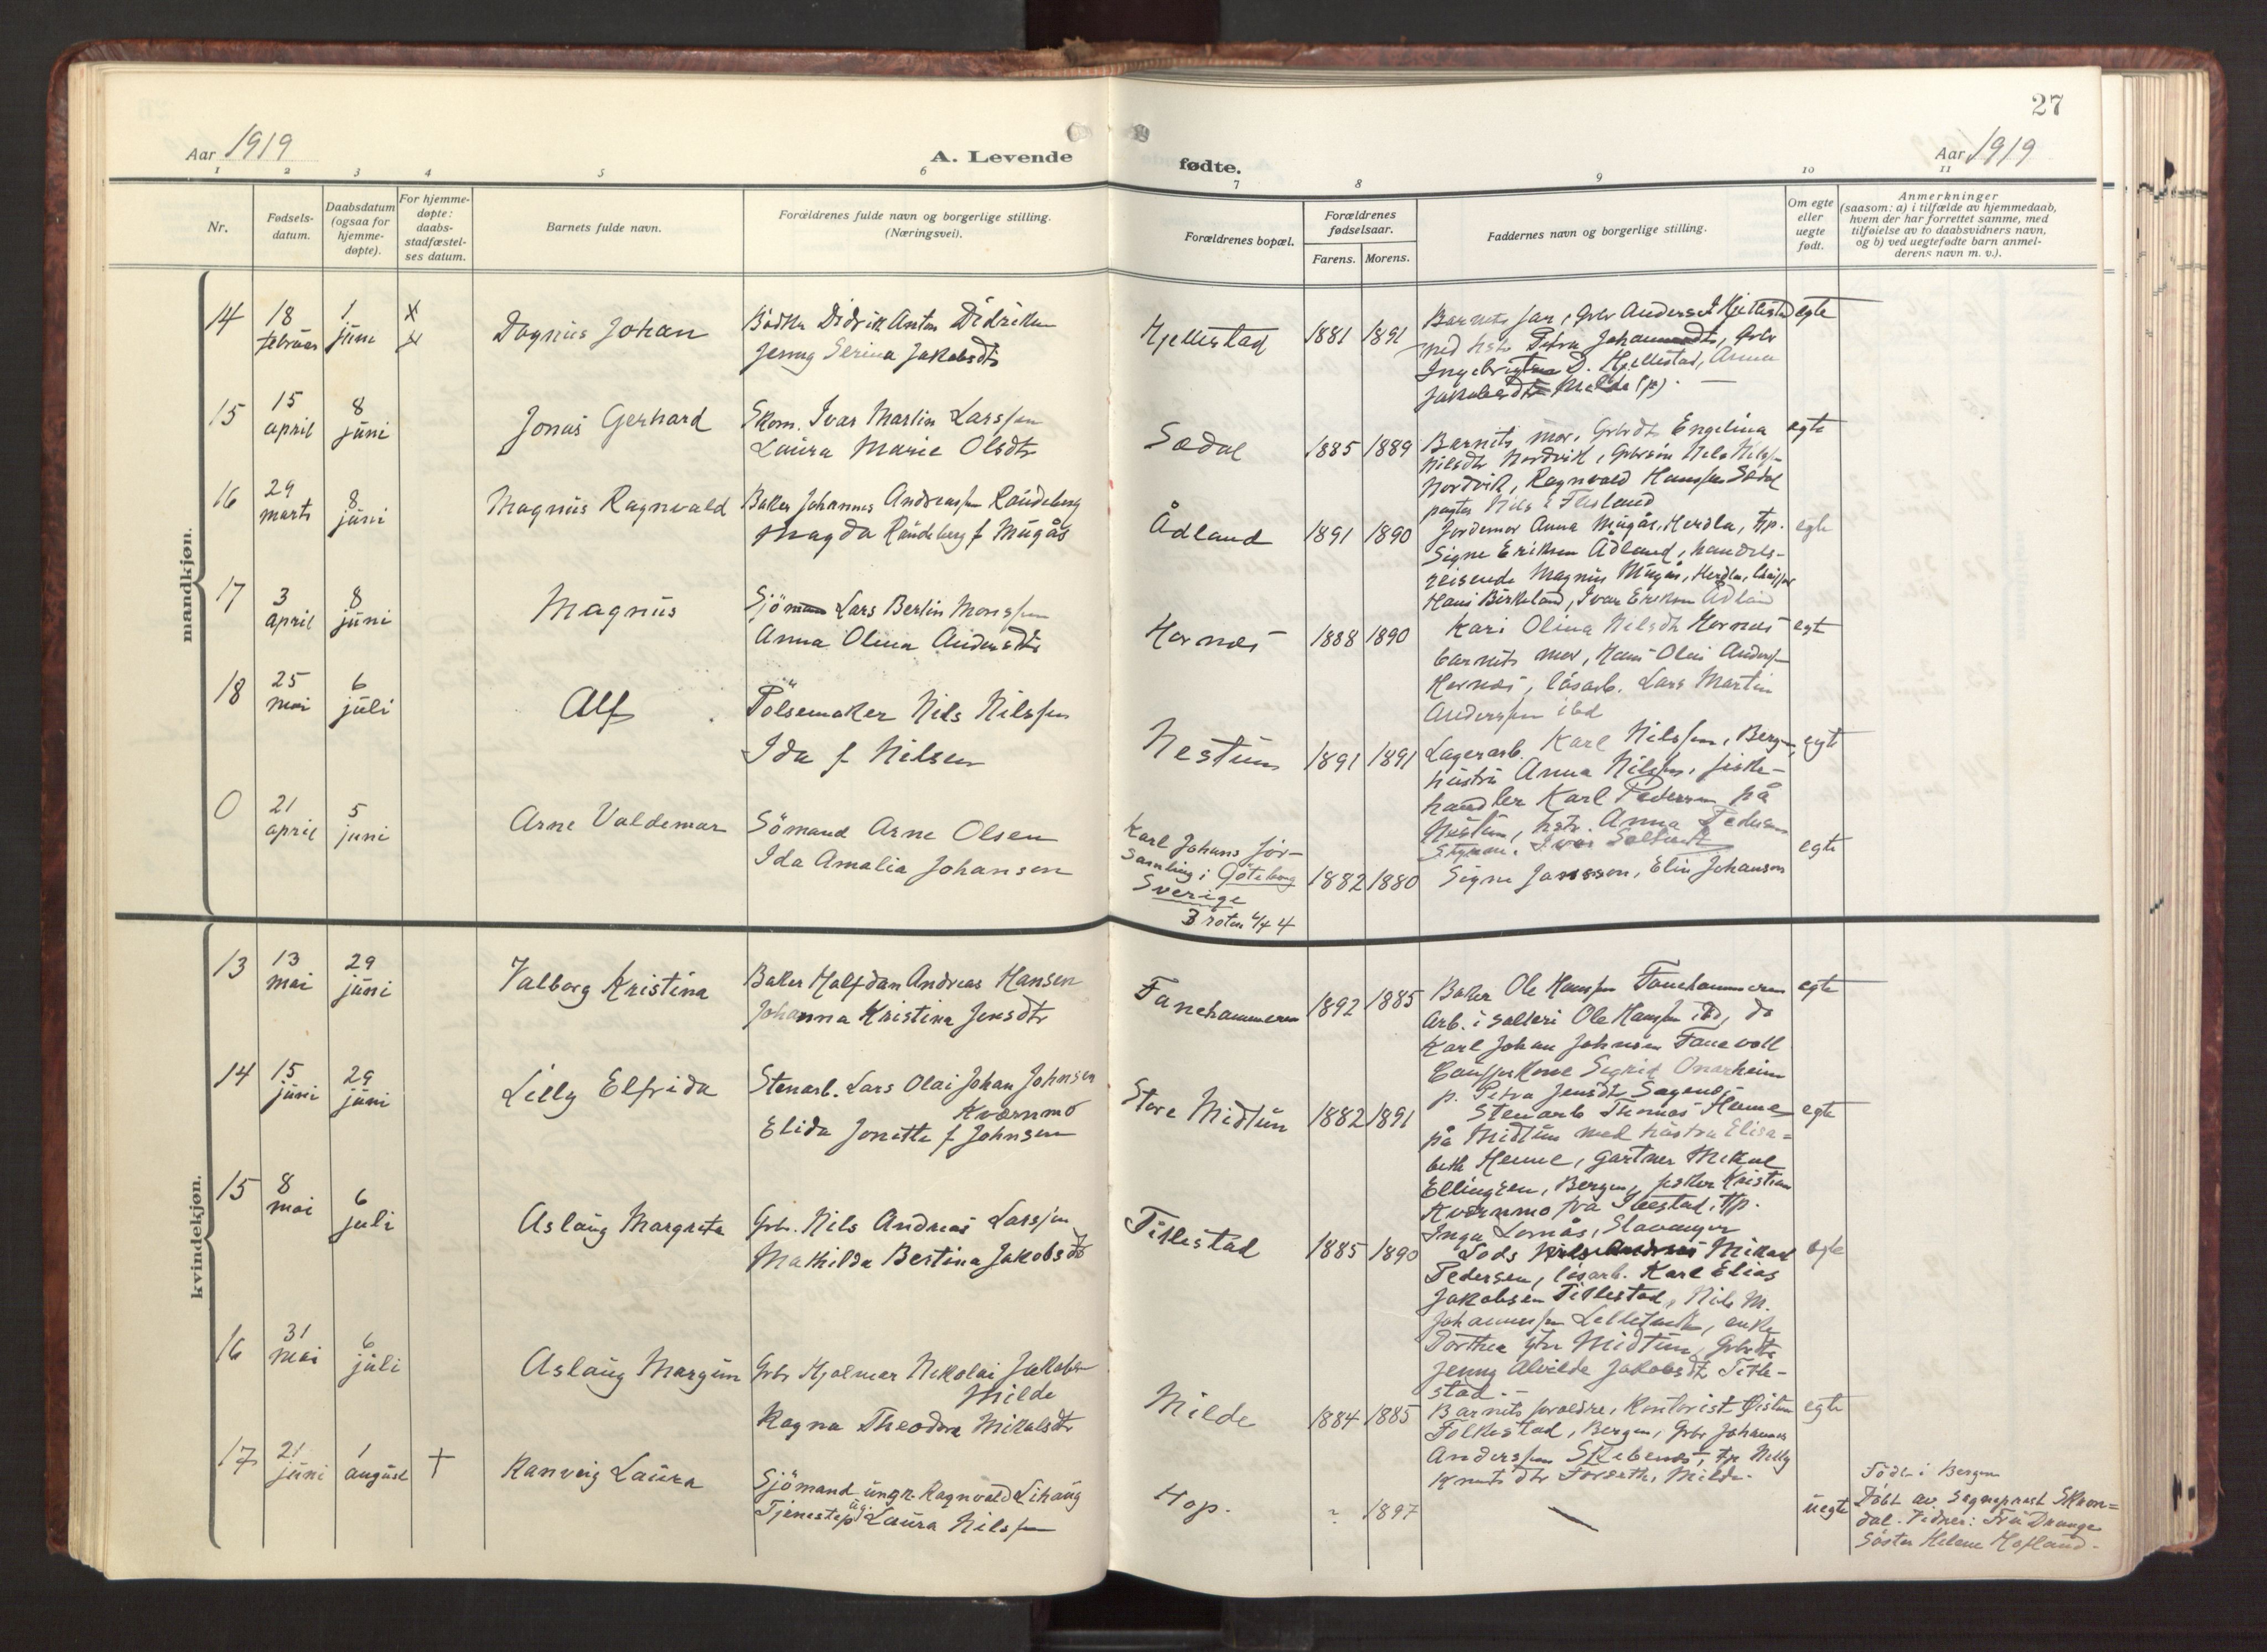 27
Aar 1919
A. Levende
fødte.
Aar 1919
1 2 3 4 5 6 7 8 9 10 11
Nr.
Fødsels-
datum.
Daabsdatum
(ogsaa for
hjemme-
døpte).
For hjemme-
døpte:
daabs-
stadfæstel-
ses datum.
Barnets fulde navn.
Forældrenes fulde navn og borgerlige stilling.
(Næringsvei).
Forældrenes bopæl.
Forældrenes
fødselsaar.
Farens. Morens.
Faddernes navn og borgerlige stilling.
Om egte
eller
uegte
født.
Anmerkninger
(saasom: a) i tilfælde av hjemmedaab,
hvem der har forrettet samme, med
tilføielse av to daabsvidners navn,
og b) ved uegtefødte barn anmel-
derens navn m. v.).
mandkjøn.
14
18
februar
1
juni
Magnus Johan
Didrik Anton Didriksen
Jenny Serina Jakobsdtr
Hjellestad
1881 1891
Barnets far, Gbr Anders I Hjellestad
med hstr Petra Johannesdtr, Gbr
Ingebrigtsen D. Hjellestad, Anna
Jakobsdtr Milde (p).
egte
15
15
april
8
juni
Jonas Gerhard
Skom. Ivar Martin Larssen
Laura Marie Olsdtr
Sædal
1885 1889
Barnets mor, Gbrdtr Engelina
Nilsdtr Nordvik, Gbrsøn Nels Nilssen
Nordvik, Ragnvald Hanssen Sædal
Nils E Flesland
egte
16
29
marts
8
juni
Magnus Ragnvald
Baker Johannes Andreassen Raudeberg
Magda Raudeberg f Mugås
Ådland
1891 1890
Jordemor Anna Mugås, Herdla, Tjp.
Signe Eriksen Ådland, handels-
reisende Magnus Mugås, Herdla,
Hans Birkeland, Ivar Eriksen Ådland
egte
17
3
april
8
juni
Magnus
Sjöman Lars Bertin Monssen
Anna Olina Andersdtr
Hornæs
1888 1890
Kari Olina Nilsdtr Hornæs
barnets mor, Hans Olai Anderssen
Hornæs, lösarb. Lars Martin
Anderssen ibd
egte
18
25
mai
6
juli
Alf
Pölsemaker Nils Nilssen
Ida f Nilsen
Nestun
1891 1891
Lagerarb. Karl Nilssen, Bergen,
hustru Anna Nilssen, fiske-
handler Karl Pedersen på
Nestun, hstr. Anna Pedersen
egte
0
21
april
5
juni
Arne Valdemar
Sömand Arne Olsen
Ida Amalia Johansen
Karl Johans för-
samling i Göteborg
Sverige
3 roten 4/4 4
1882 1880
Signe Jansson, Elin Johanson
egte
kvindekjøn.
13
13
mai
29
juni
Valborg Kristina
Baker Halfdan Andreas Hansen
Johanna Kristina Jensdtr
Fanehammeren
1892 1885
Baker Ole Hanssen Fanehammeren
Arb. i Ole Hanssen ibd, do
Karl Johan Johnsen Fanevoll
Sigrid Onarheim
p. Petra Jensdtr
egte
14
15
juni
29
juni
Lilly Elfrida
Stenarb. Lars Olai Johan Johnsen
Kvernmo
Elida Jonette f Johnsen
Store Midtun
1882 1891
Stenarb Thomas Henne
på Midtun med hustru Elisa=
beth Henne, gartner Mikal
Ellingsen, Bergen, Kristian
Kvernmo fra Ibestad, Tjp.
Inga Lornås, Stavanger
egte
15
8
mai
6
juli
Aslaug Margreta
Gbr. Nils Andreas Larssen
Mathilde Bertina Jakobsdtr
Titlestad
1885 1890
Lods Mikal
Pedersen, lösarb. Karl Elias
Jakobsen Titlestad, Nils M.
Johannessen enke
Dorthea Midtun, Gbrdtr
Jenny Alvilde Jakobsdtr Title-
stad.
egte
16
31
mai
6
juli
Aslaug Margun
Gbr Hjalmar Nikolai Jakobsen
Milde
Ragna Theodora Mikalsdtr
Milde
1884 1885
Barnets foreldre, Kontorist Østen
Folkestad, Bergen, Gbr Johannes
Anderssen Skibenæs, Tjp Nelly
Knutsdtr Forseth, Milde.
egte
17
21
juni
1
august
†
Ranveig Laura
Sjömand ungk. Ragnvald Lihaug
Tjenestep ug. Laura Nilssen
Hop.
? 1897
uegte
Født i Bergen
Døbt av Sogneprest Skron=
dal. Vidner: Fru Drange
Söster Helene Hofland.